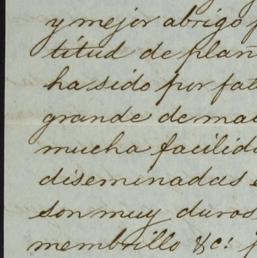 y mejor abrigo p
titud de plan
ha sido por fat
grande de ma
mucha facilid
diseminadas
son muy duros
membrillo &c.